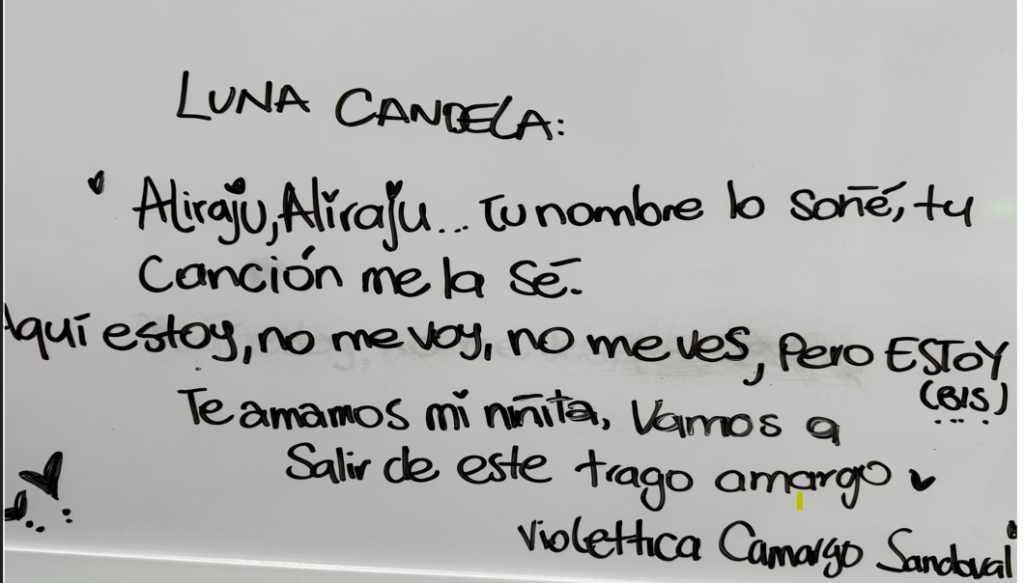 LUNA CANDELA:
Aliraju, Aliraju... Tu nombre lo soñé, tu
Canción me la sé.
Aquí estoy, no me voy, no me ves, Pero ESTOY
(BIS)
Te amamos mi niñita, Vamos a
Salir de este trago amargo
Violettica Camargo Sandoval